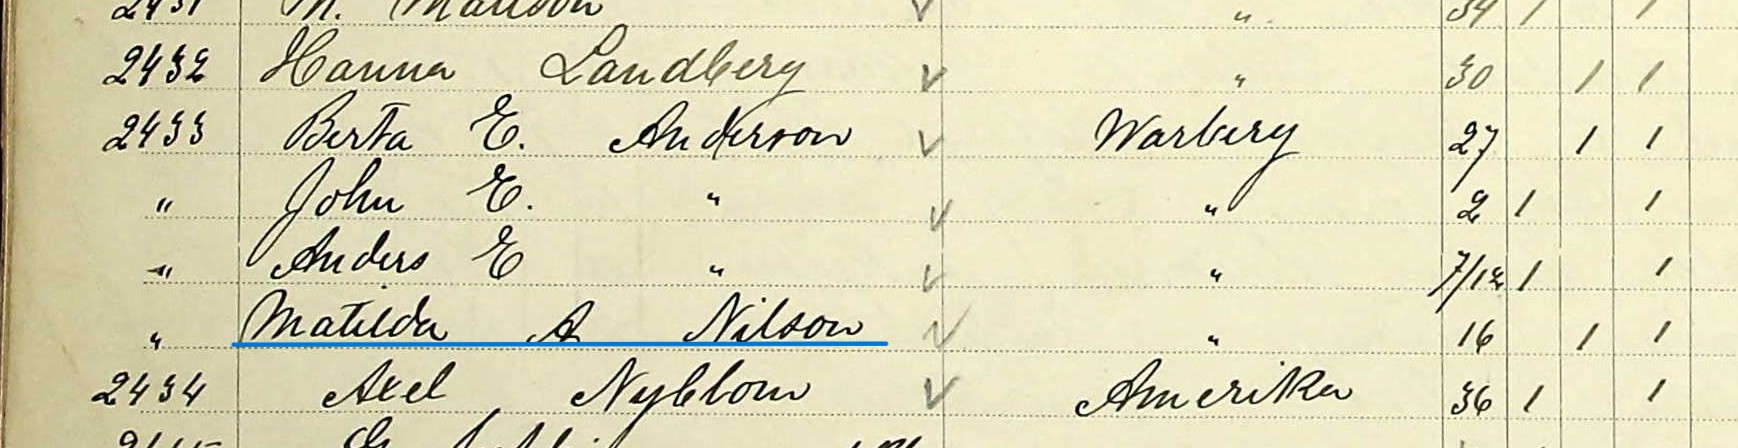 2431 M. Mattson √ " 34 1 1
2432 Hanna Landberg √ " 30 1 1
2433 Berta E. Anderson √ Warberg 27 1 1
" John E. " √ " 2 1 1
" Anders E " √ " 7/12 1 1
" Matilda A Nilson √ " 16 1 1
2434 Axel Nyblom √ Amerika 36 1 1